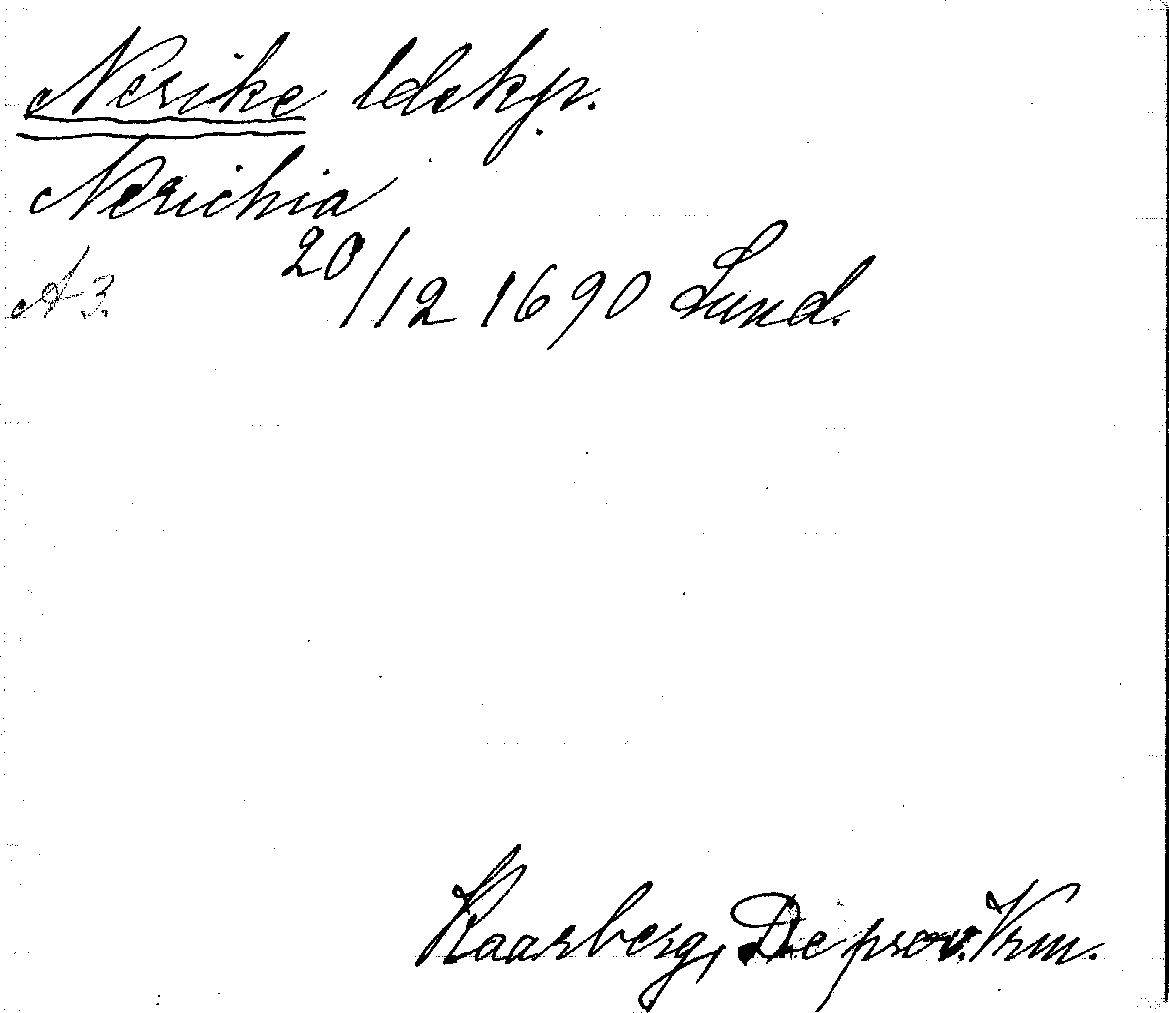 Nerike ldskp.
Nerichia
A3. 20/12 1690 Lund.
Kaarberg, De prov. Vrm.